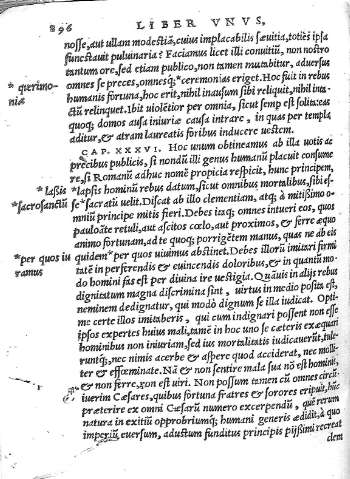 896 LIBER VNVS,
nosse, aut ullam modestiã, cuius implacabilis sæuitia, toties ipsa
functs auit puluinaria? Faciamus licet illi conuitiũ, non nostro
tantum ore, sed etiam publico, non tamen mutabitur, aduersus
omnes se preces, omnesq; *ceremonias eriget. Hoc fuit in rebus
* querimo-
niæ
humanis fortuna, hoc erit, nihil inausum sibi reliquit, nihil inta-
ctũ relinquet. Ibit uiolẽtior per omnia, sicut semp est solita: eas
quoq; domos ausa iniuriæ causa intrare, in quas per templa
aditur, & atram laureatis foribus inducere uestem.
CAP. XXXVI. Hoc unum obtineamus ab illa uotis ac
precibus publicis, si nondũ illi genus humanũ placuit consume
re, si Romanũ adhuc nomẽ propicia respicit, hunc principem,
* lassis
*lapsis hominũ rebus datum, sicut omnibus mortalibus, sibi es-
*sacrosanctũ
se *sacratũ uelit. Discat ab illo clementiam, atq; à mitissimo o-
mniũ principe mitis fieri. Debes itaq; omnes intueri eos, quos
pauloãte retuli, aut ascitos cœlo, aut proximos, & ferre æquo
animo fortunam, ad te quoq; porrigẽtem manus, quas ne ab eis
*per quos iu
ramus
quidem *per quos uiuimus abstinet. Debes illorũ imitari firmi
tatẽ in perferendis & euincendis doloribus, & in quantũ mo-
do homini fas est per diuina ire uestigia. Quãuis in alijs rebus
dignitatum magna discrimina sint, uirtus in medio posita est,
neminem dedignatur, qui modò dignum se illa iudicat. Opti-
me certe illos imitaberis, qui cum indignari possent non esse
ipsos expertes huius mali, tamẽ in hoc uno se cæteris exæquari
hominibus non iniuriam, sed ius mortalitatis iudicauerũt, tule-
runtq;, nec nimis acerbe & aspere quod acciderat, nec molli-
ter & effœminate. Nã & non sentire mala sua nõ est hominis,
& non ferre, non est uiri. Non possum tamen cũ omnes circũ-
iuerim Cæsares, quibus fortuna fratres & sorores eripuit, hũc
præterire ex omni Cæsarũ numero excerpendũ, quẽ rerum
natura in exitiũ opprobriumq; humani generis ædidit, à quo
imperiũ euersum, adustum funditus principis pijssimi recreat
clem